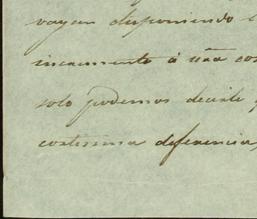 vayan disponiendo
incremento á una
solo podemos decirle
cortisima diferencia,